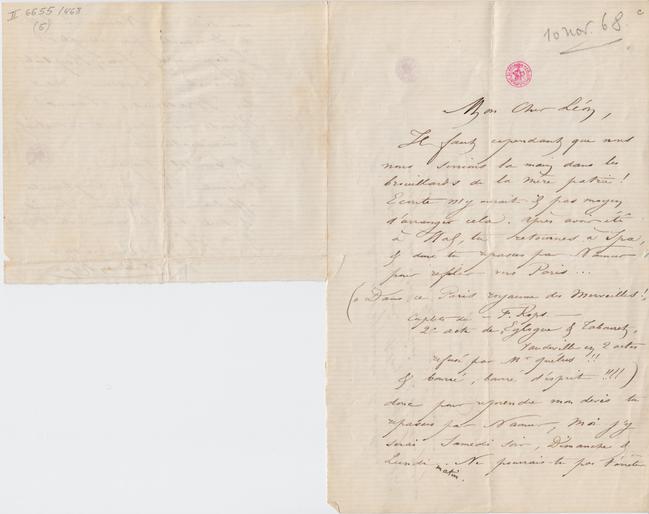 II 6655/468
(6)
10 nov. 68
c
Mon Cher Léon,
Il faut cependant que nous
nous serrions la main dans les
brouillards de la mère patrie !
Ecoute n'y aurait il pas moyen
d'arranger cela. Après avoir été
à Hal, tu retournes à Spa,
& donc tu repasses par Namur
pour refiler vers Paris ...
(« Dans ce Paris royaume des Merveilles !,
Couplet de - F. Rops -
2e acte de Eglogue & Tabouret,
Vaudeville en 2 actes
refusé par Mr Quélus !!
& bourré, bourré d'esprit !!! )
donc pour reprendre mon devis tu
repasses par Namur, Moi j'y
serai Samedi soir, Dimanche &
Lundi matin. Ne pourrais-tu pas t'arrêter